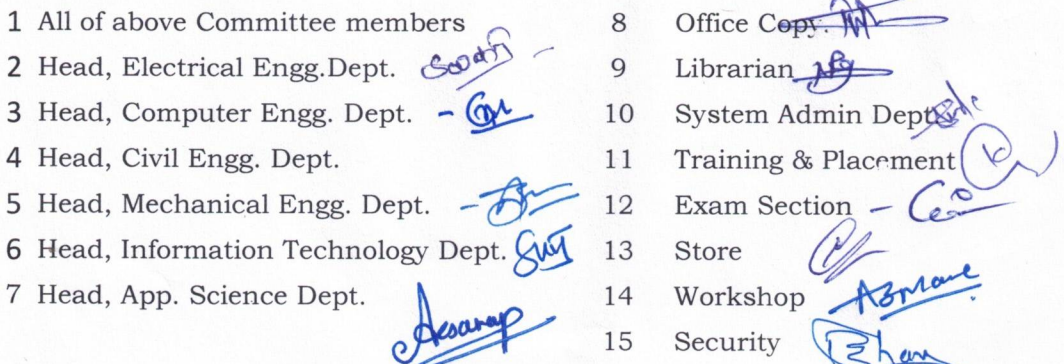 1 All of above Committee members
2 Head, Electrical Engg.Dept.
3 Head, Computer Engg. Dept. -
4 Head, Civil Engg. Dept.
5 Head, Mechanical Engg. Dept. -
6 Head, Information Technology Dept.
7 Head, App. Science Dept.
8 Office Copy.
9 Librarian
10 System Admin Dept
11 Training & Placement
12 Exam Section -
13 Store
14 Workshop
15 Security